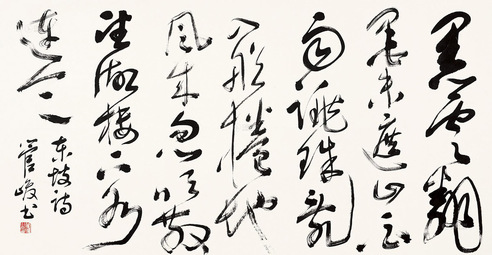 黑雲翻
墨未遮山白
雨跳珠亂
入船捲地
風來忽吹散
望湖樓下水
連天
東坡詩
管峻書